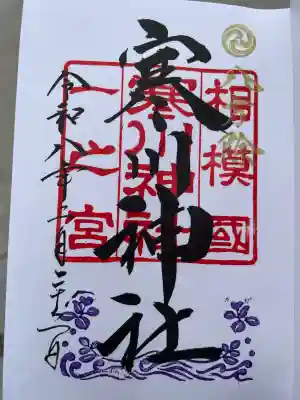 八方除
寒川神社
相模國
寒川神社
一之宮
令和八年二月二十一日